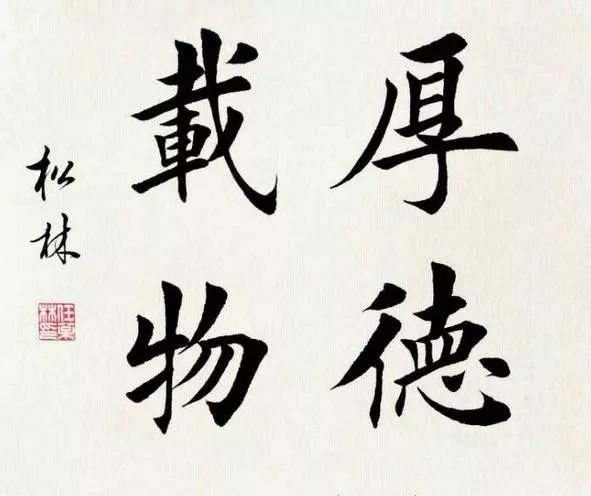 厚德
載物
松林